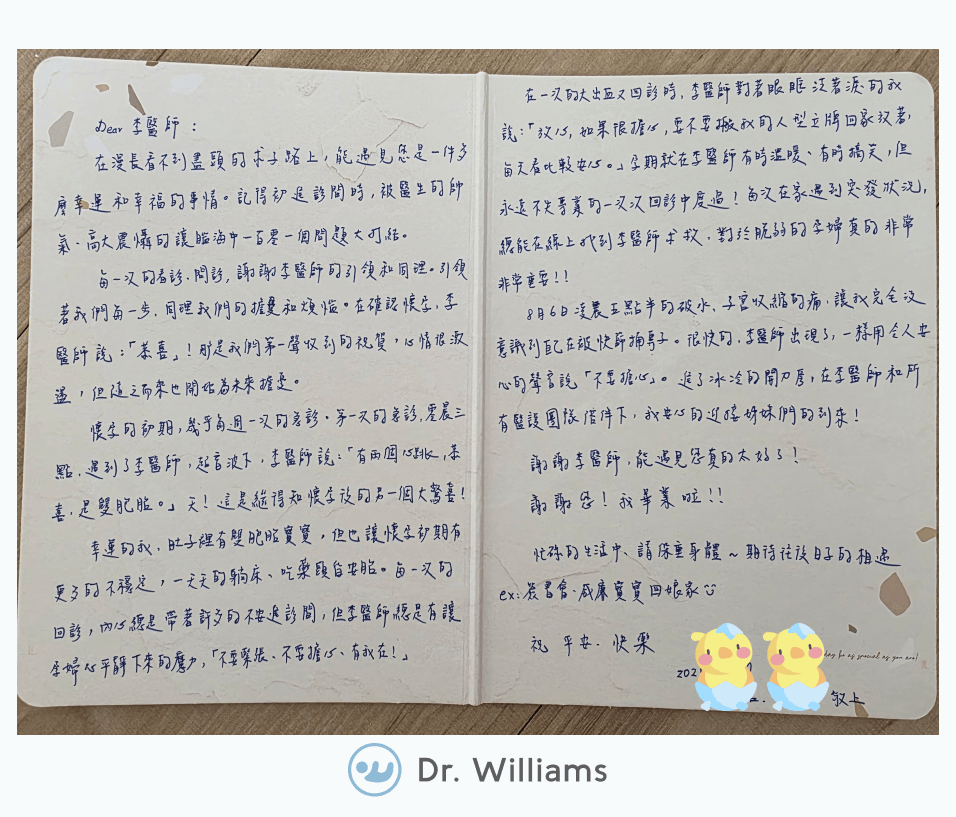 Dear 李醫師：
在漫長看不到盡頭的求子路上，能遇見您是一件多
麼幸運和幸福的事情。記得初進診間時，被醫生的帥
氣、高大震懾的讓腦海中一百零一個問題大打結。
每一次的看診、問診，謝謝李醫師的引領和同理。引領
著我們每一步，同理我們的擔憂和煩惱。在確認懷孕，李
醫師說：「恭喜」！那是我們第一聲收到的祝賀，心情很激
盪，但隨之而來也開始為未來擔憂。
懷孕的初期，幾乎每週一次的急診。第一次的急診，凌晨三
點，遇到了李醫師，超音波下，李醫師說：「有兩個心跳，恭
喜，是雙胞胎。」天！這是繼得知懷孕後的另一個大驚喜！
幸運的我，肚子裡有雙胞胎寶寶，但也讓懷孕初期有
更多的不穩定，一天天的躺床、吃藥頭自安胎。每一次的
回診，內心總是帶著許多的不安進診間，但李醫師總是有讓
孕婦心平靜下來的魔力，「不要緊張、不要擔心、有我在！」
在一次的大出血又回診時，李醫師對著眼眶泛著淚的我
說：「放心，如果很擔心，要不要搬我的人型立牌回家放著，
每天看比較安心。」孕期就在李醫師有時溫暖、有時搞笑，但
永遠不失專業的一次次回診中度過！每次在家遇到突發狀況，
總能在線上找到李醫師求救，對於脆弱的孕婦真的非常
非常重要！！
8月6日凌晨五點半的破水、子宮收縮的痛，讓我完全沒
意識到自己在被快節拍專子。很快的，李醫師出現了，一樣用令人安
心的聲音說「不要擔心」。進了冰冷的開刀房，在李醫師和所
有醫護團隊陪伴下，我安心的迎接姊妹們的到來！
謝謝李醫師，能遇見您真的太好了！
謝謝您！我畢業啦！！
忙碌的生活中、請保重身體～期待往後日子的相遇
ex:簽書會、威廉寶寶回娘家
祝 平安、快樂
202
敬上
day be as special as you are!
Dr. Williams